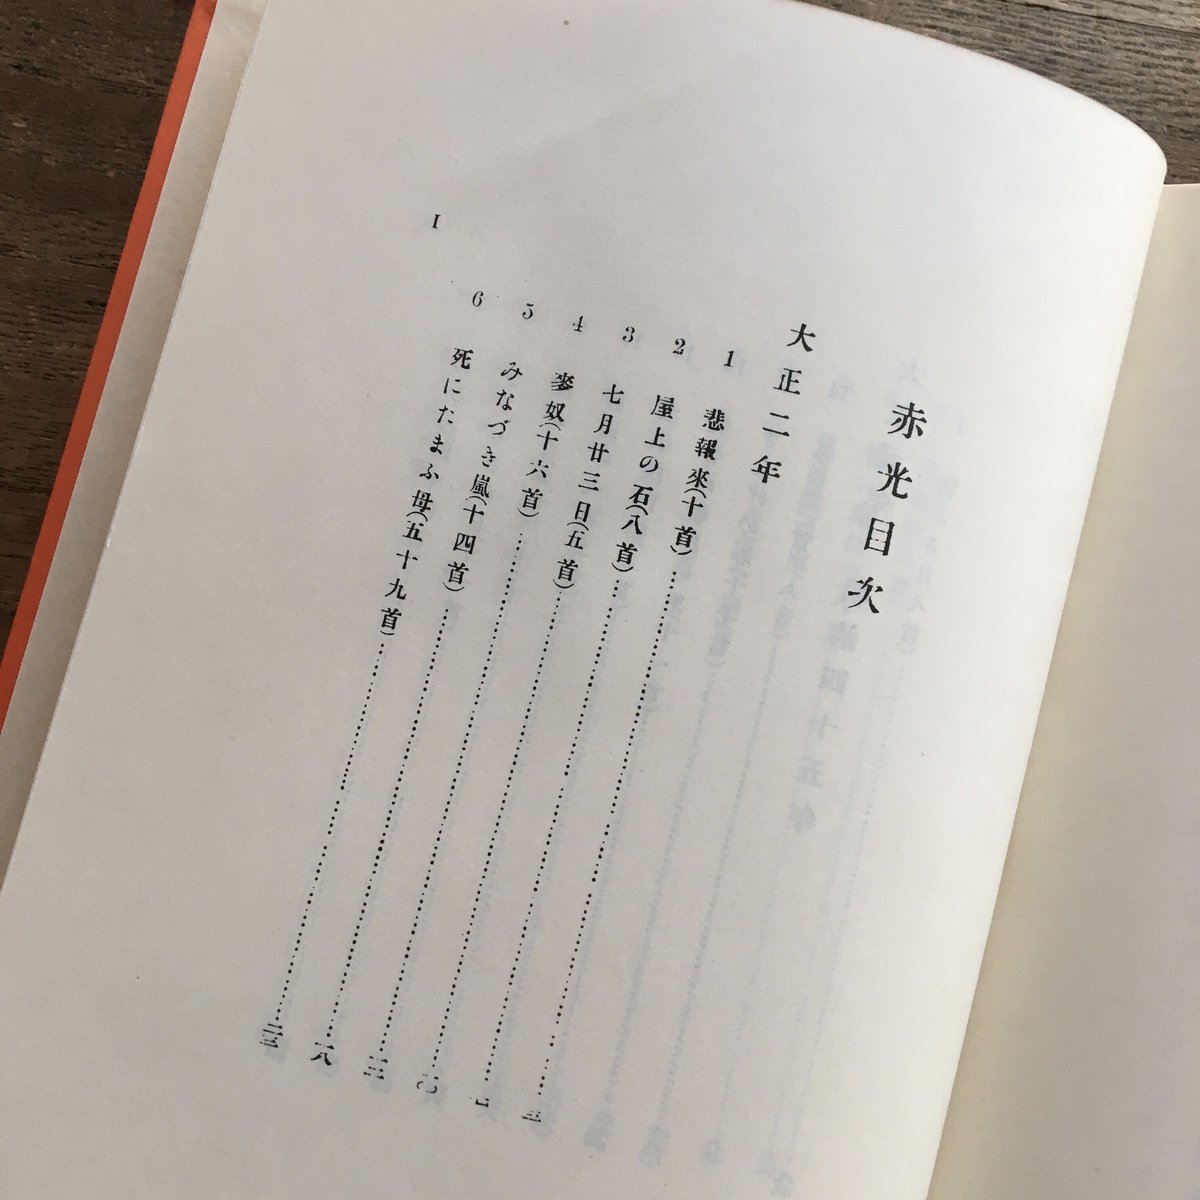 赤光目次
大正二年
1 悲報來(十首)…………三
2 屋上の石(八首)…………七
3 七月廿三日(五首)…………一〇
4 麥奴(十六首)…………一二
5 みなづき嵐(十四首)…………一八
6 死にたまふ母(五十九首)…………二三
I